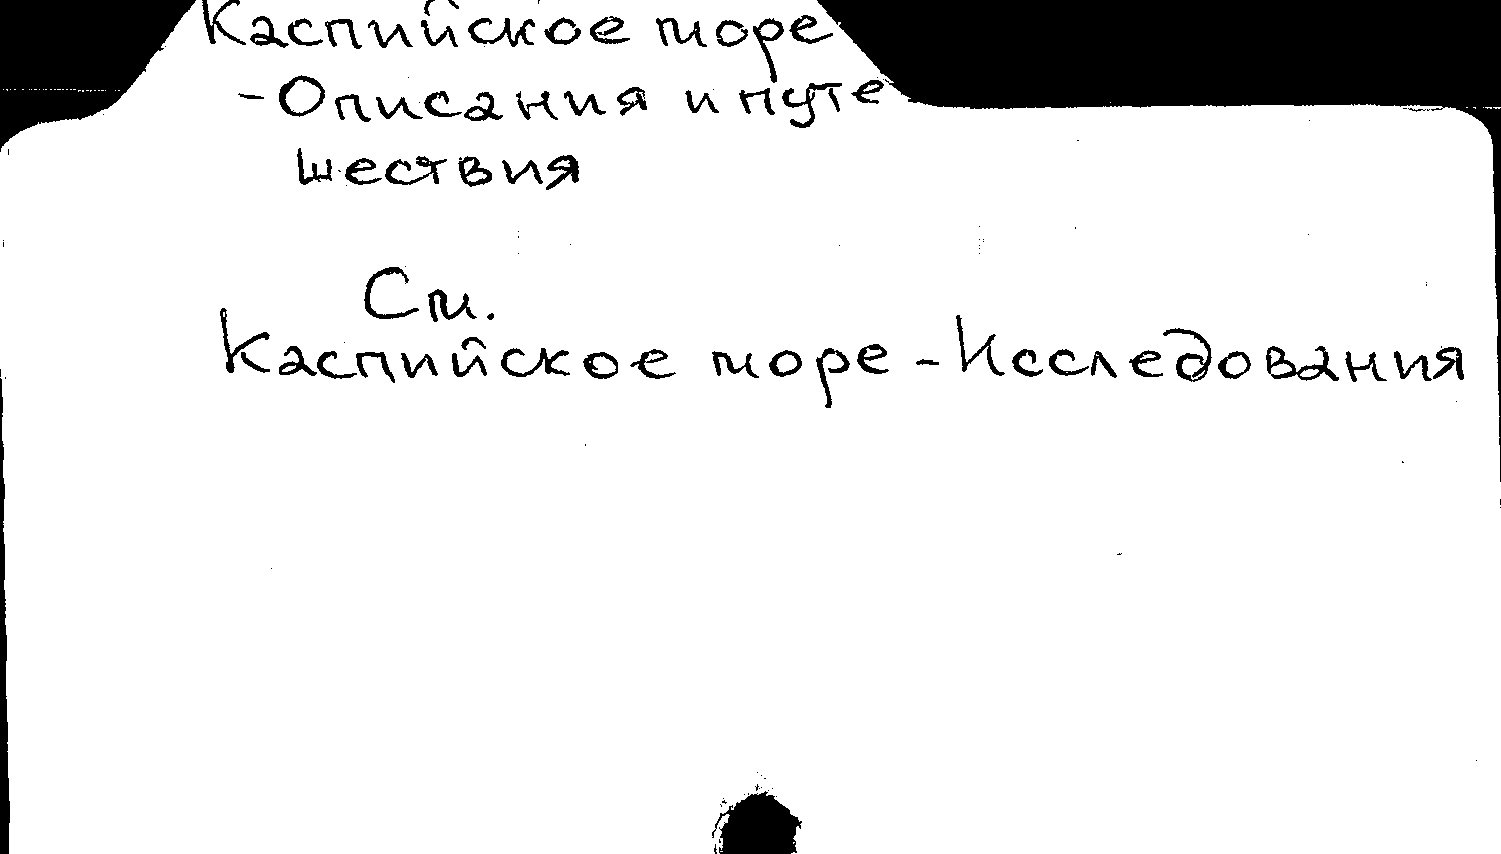 Каспийское море
-Описания и путе
шествия
См.
Каспийское море - Исследования